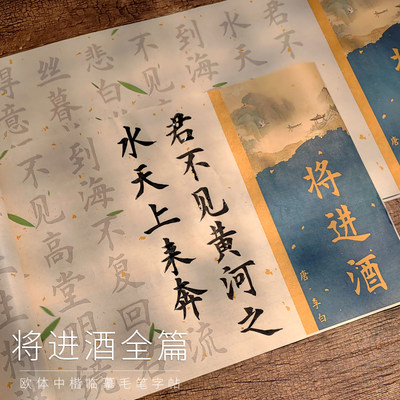 将进酒
唐 李白
君不见黄河之
水天上来奔
君不
水天
到海
不见
悲白
丝暮
得意
流
到海不复回
不见高堂
将进酒全篇
欧体中楷临摹毛笔字帖